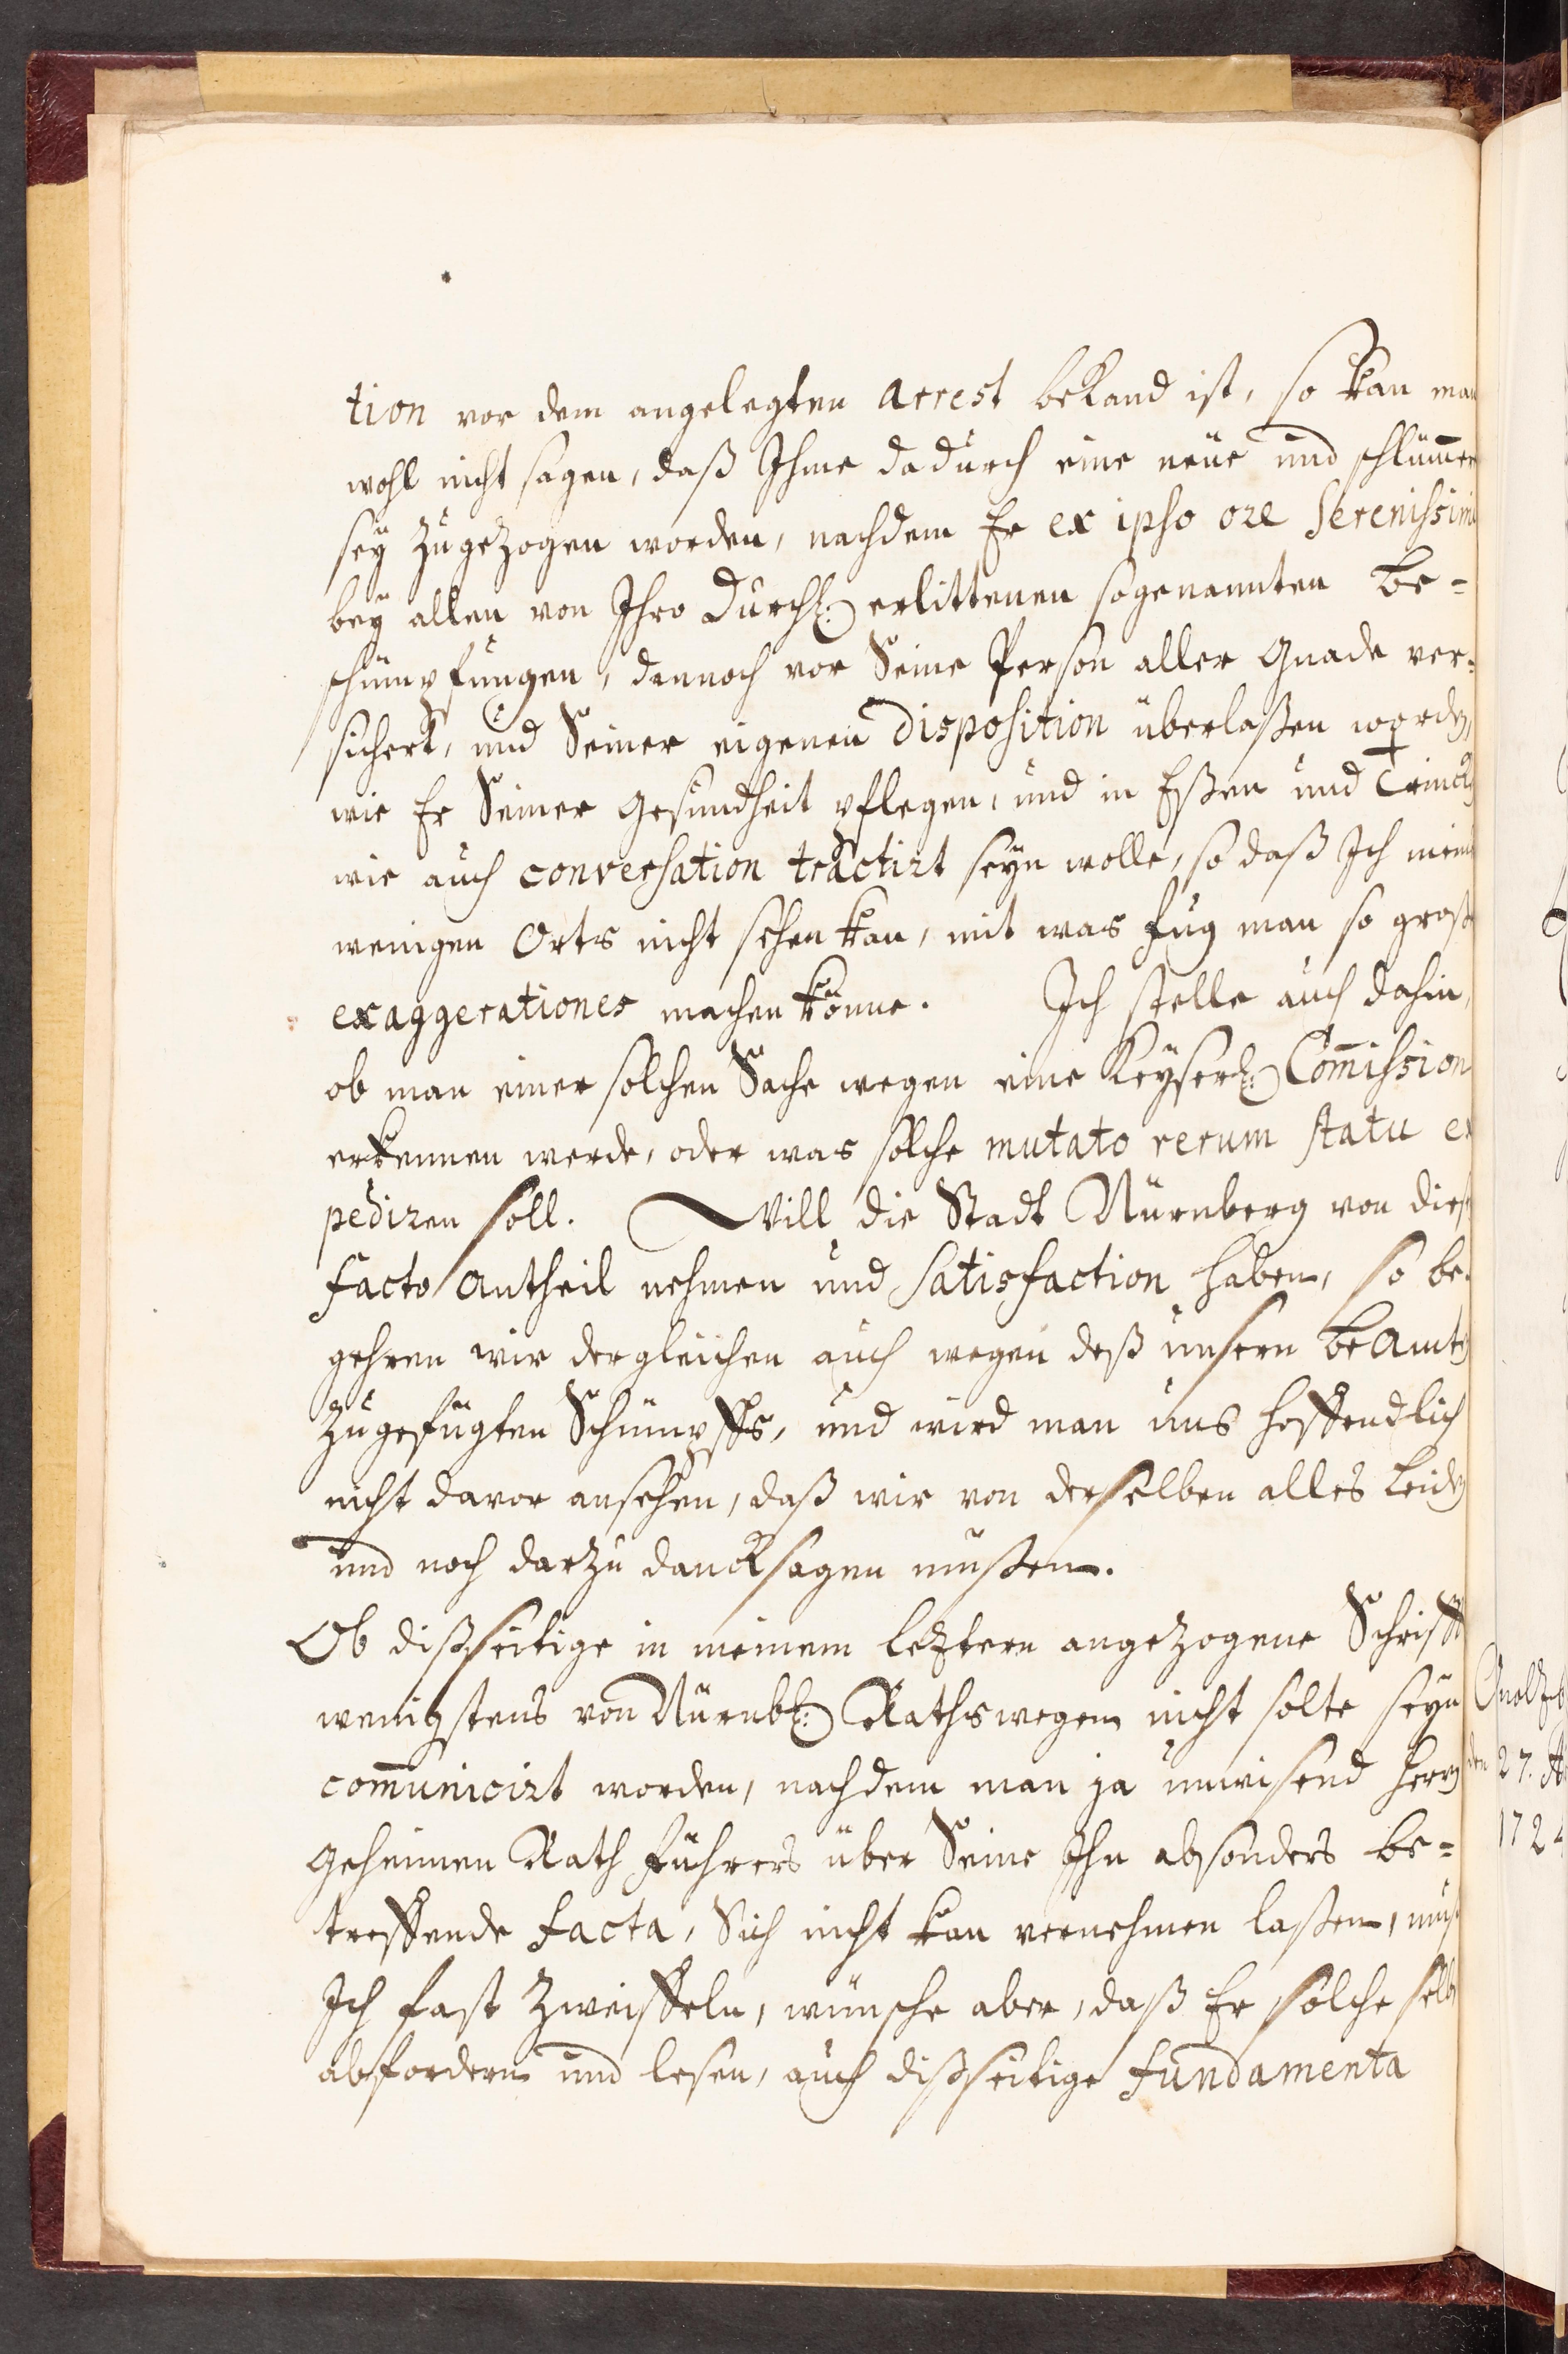 tion vor dem angelegten Arrest bekand ist, so kan man
wohl nicht sagen, daß Ihme dadurch eine neue und schlim̄ere
sey zugezogen worden, nachdem Er ex ipso ore Serenissimi
bey allen von Ihro Durchl: erlittenen sogenannten Be-
schimpfungen, dennoch vor Seine Person aller Gnade ver-
sichert, und Seiner eigenen disposition überlaßen worden,
wie Er Seiner Gesundheit pflegen, und in Eßen und Trincken
wie auch conversation tractirt seyn wolle, so daß Ich meines
wenigen Orts nicht sehen kan, mit was Fug man so große
exaggerationes machen könne. Ich stelle auch dahin,
ob man einer solchen Sache wegen eine Keyserl: Com̄ission
erkennen werde, oder was solche mutato rerum statu ex
pediren soll. Will die Stadt Nürnberg von diesem
facto Antheil nehmen und Satisfaction haben, so be-
gehren wir dergleichen auch wegen deß unsern Beamten
zugefügten Schimpffs, und wird man uns hoffendlich
nicht davor ansehen, daß wir von derselben alles leiden
und noch darzu dancksagen müßten.
Ob dißseitige in meinem leztern angezogene Schrifft
wenigstens von Nürnbl: Rathswegen nicht solte seyn
com̄unicirt worden, nachdem man ja unwißend Herrn
Geheimen Rath Führers über Seine Ihn absonders be-
treffende facta, Sich nicht kan vernehmen laßen, muß
Ich fast zweiffeln, wünsche aber, daß Er solche selbst
abfordern und lesen, auch dißseitige fundamenta
den 27.